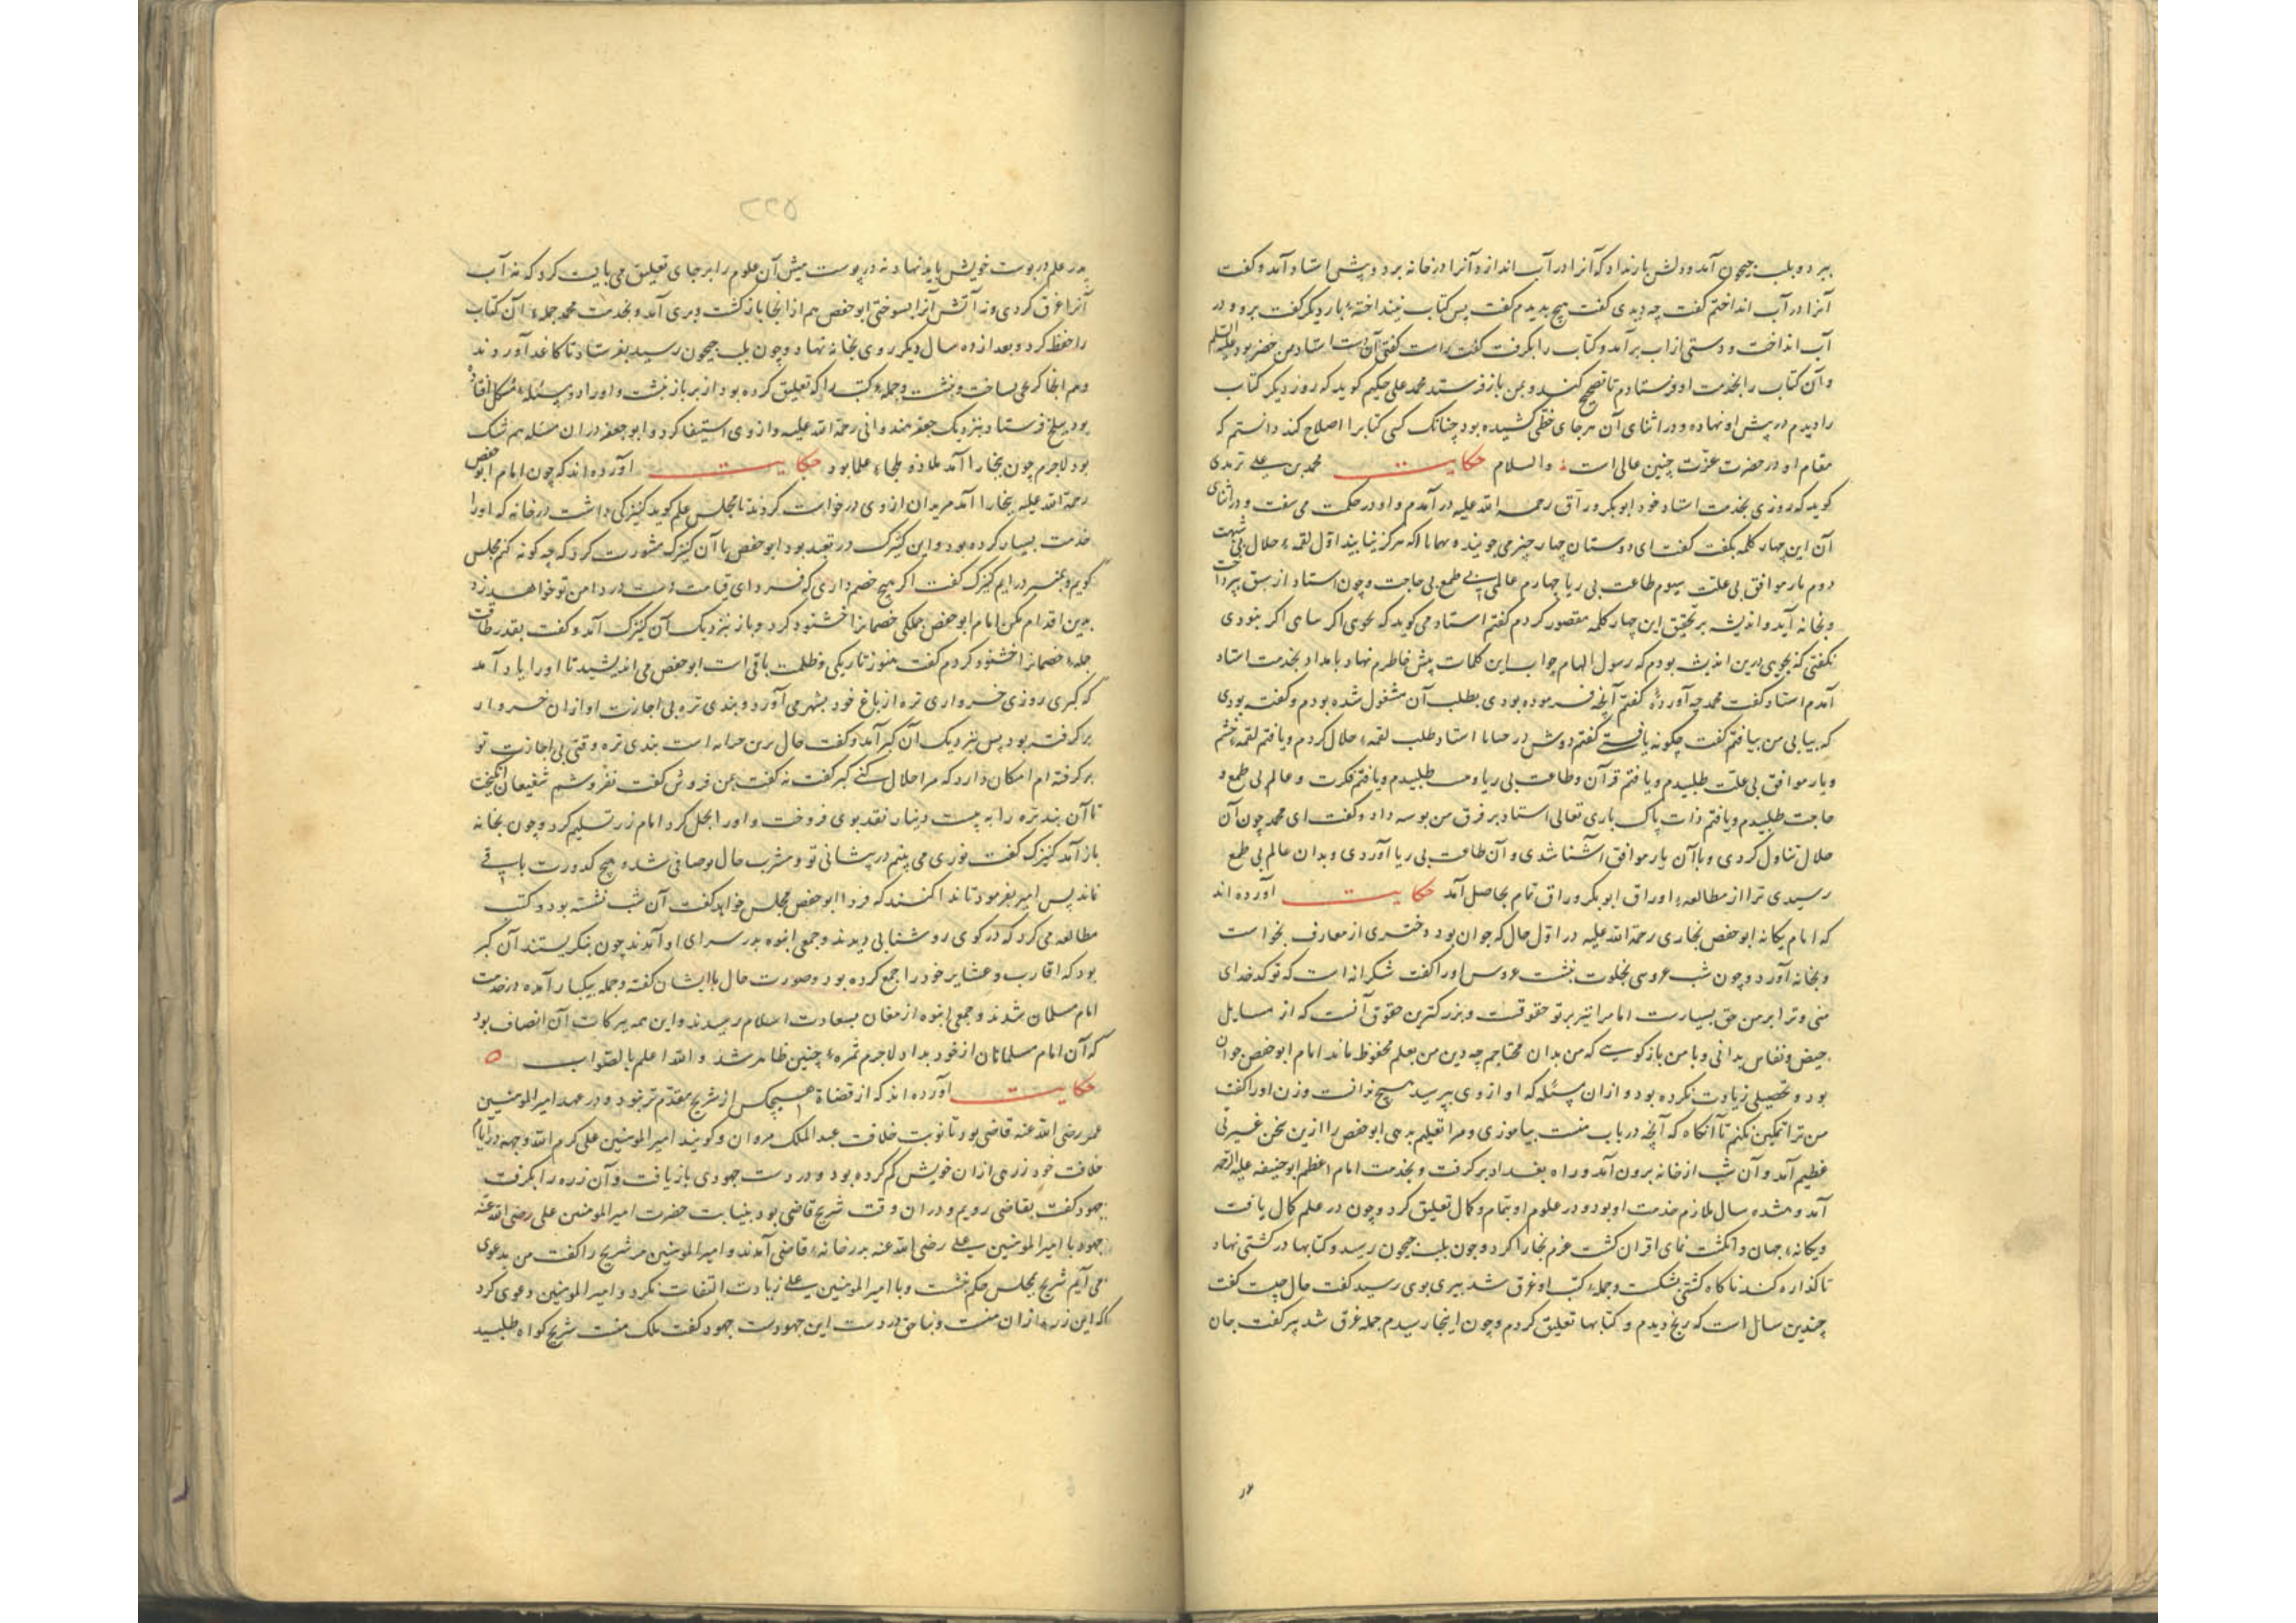 ببرد و بلب جیحون آمد و دلش بار نداد که آنرا در آب اندازد و آنرا در خانه برد و پیش استاد آمد و گفت
آنرا در آب انداختم گفت چه دیدی گفت هیچ ندیدم گفت پس کتاب نینداختهٔ بار دیگر گفت برو و در
آب انداخت و دستی از آب برآمد و کتاب را بگرفت گفت راست گفتی آن دست استاد من خضر بود علیه السلم
و آن کتاب را بخدمت او فرستادم تا تصحیح کند و بمن باز فرستد محمد علی حکیم گوید که روز دیگر کتاب
را دیدم در پیش او نهاده و در اثنای آن هر جای خطی کشیده بود چنانک کسی کتابرا اصلاح کند دانستم که
مقام او در حضرت عزت چنین عالی است والسلام حکایت محمد بن علی ترمدی
گوید که روزی بخدمت استاد خود ابوبکر وراق رحمه الله علیه در آمدم و او در حکمت می سفت و در اثنای
آن این چهار کلمه بگفت گفت ای دوستان چهار چیز می جویند و همانا که هرگز نیابند اول لقمهٔ حلال بی شبهت
دوم یار موافق بی علت سیوم طاعت بی ریا چهارم عالمی بی طمع بی حاجت و چون استاد از سبق بپرداخت
و بخانه آمد و اندیشه بر تحقیق این چهار کلمه مقصور کردم گفتم استاد می گوید که بجوی اگر سامی اگر نبودی
نگفتی که بجوی درین اندیشه بودم که رسول الهام جواب این کلمات پیش خاطرم نهاد بامداد بخدمت استاد
آمدم استاد گفت محمد چه آوردهٔ گفتم آنچه فرموده بودی بطلب آن مشغول شده بودم و گفته بودی
که بیابی من بیافتم گفت چگونه یافتی گفتم دوش در استاد طلب لقمهٔ حلال کردم و یافتم لقمهٔ خشم
و یار موافق بی علت طلبیدم و یافتم قرآن و طاعت بی ریا و طلبیدم و یافتم فکرت و عالم بی طمع و
حاجت طلبیدم و یافتم ذات پاک باری تعالی استاد بر فرق من بوسه داد و گفت ای محمد چون آن
حلال تناول کردی و با آن یار موافق آشنا شدی و آن طاعت بی ریا آوردی و بدان عالم بی طمع
رسیدی ترا از مطالعهٔ اوراق ابوبکر وراق تمام بحاصل آمد حکایت آورده اند
که امام یگانه ابوحفص بخاری رحمة الله علیه در اول حال که جوان بود دختری از معارف بخواست
و بخانه آورد و چون شب عروسی بخلوت بنشست عروس او را گفت شکرانه است که تو کدخدای
منی و ترا بر من حق بسیارست اما مرا نیز بر تو حقوقست و بزرگترین حقوق آنست که از مسایل
حیض و نفاس بدانی و با من بازگویی که من بدان محتاجم چه دین من بعلم محفوظ ماند امام ابوحفص جوان
بود و تحصیلی زیادت نکرده بود و ازان مسئله که او از وی بپرسید هیچ ندانست و زن او را گفت
من ترا تمکین نکنم تا آنگاه که آنچه درباب منست بیاموزی و مرا تعلیم بدهی ابوحفص را ازین سخن غیرتی
عظیم آمد و آن شب از خانه برون آمد و راه بغداد برگرفت و بخدمت امام اعظم ابوحنیفه علیه الرحمه
آمد و ده سال ملازم خدمت او بود و در علوم او بتمام و کمال تعلیق کرد و چون در علم کمال یافت
و یگانهٔ جهان و انگشت نمای اقران گشت عزم بخارا کرد و چون بلب جیحون رسید و کتابها در کشتی نهاد
تا گذاره کند ناگاه کشتی بشکست و جملهٔ کتب او غرق شد پیری بوی رسید گفت حال چیست گفت
چندین سال است که رنج دیدم و کتابها تعلیق کردم و چون اینجا رسیدم جمله غرق شد پیر گفت جان
۲۲۵
پدر علم در پوست خویش باید نهاد نه در پوست میش آن علوم را بر جای تعلیق می بایست کرد که نه آب
آنرا غرق کردی و نه آتش آنرا بسوختی ابوحفص هم از انجا بازگشت و بری آمد و بخدمت محمد جملهٔ آن کتاب
را حفظ کرد و بعد از ده سال دیگر روی بخانه نهاد و چون بلب جیحون رسید بفرستاد تا کاغد آوردند
و هم انجا بساخت و بنشست و جملهٔ کتب را که تعلیق کرده بود از بر باز نبشت و او را دو مسئلهٔ مشکل افتاده
بود ببلخ فرستاد بنزدیک جعفر هندوانی رحمة الله علیه و از وی استیفا کرد و ابوجعفر در ان مسئله هم شک
بود لاجرم چون ببخارا آمد ملاذ و ملجاء علما بود حکایت آورده اند که چون امام ابوحفص
رحمة الله علیه ببخارا آمد مریدان از وی درخواست کردند تا مجلس علم گوید کنیزکی داشت در خانه که او را
خدمت بسیار کرده بود و این کنیزک در تعبد بود ابوحفص با آن کنیزک مشورت کرد که چه گونه کنم مجلس
گویم و بمنبر درآیم کنیزک گفت اگر هیچ خصم داری که فردای قیامت دست در دامن تو خواهد زد
بدین اقدام مکن امام ابوحفص جملگی خصمانرا خشنود کرد و باز بنزدیک آن کنیزک آمد و گفت بقدر طاقت
جملهٔ خصمانرا خشنود کردم گفت هنوز تاریکی و ظلمت باقی است ابوحفص می اندیشید تا او را یاد آمد
که گبری روزی خرواری تره از باغ خود بشهر می آورد و بندی تره بی اجازت او ازان خروار
برگرفته بود پس نزدیک آن گبر آمد و گفت حال برین است بندی تره وقتی بی اجازت تو
برگرفته ام امکان دارد که مرا حلال کنی گبر گفت نه گفت بمن فروش گفت نفروشم شفیعان انگیخت
تا آن بند تره را به بیست دینار نقد بوی فروخت و او را بحل کرد امام زر تسلیم کرد و چون بخانه
باز آمد کنیزک گفت نوری می بینم در پیشانی تو و مشرب حال تو صافی شده و هیچ کدورت باقی
نماند پس امیر بفرمود تا ندا کنند که فردا ابوحفص مجلس خواهد گفت آن شب نشسته بود و کتب
مطالعه می کرد که در کوی روشنایی دیدند و جمعی انبوه بدر سرای او آمدند چون بنگریستند آن گبر
بود که اقارب و عشایر خود را جمع کرده بود و صورت حال با ایشان گفته و جمله بیکبار آمده در خدمت
امام مسلمان شدند و جمعی انبوه از مغان بسعادت اسلام رسیدند و این همه برکات آن انصاف بود
که آن امام مسلمانان از خود بداد لاجرم ثمرهٔ چنین ظاهر شد والله اعلم بالصواب ه
حکایت آورده اند که از قضاة هیچکس از شریح مقدم تر نبود و در عهد امیرالمومنین
عمر رضی الله عنه قاضی بود تا نوبت خلافت عبدالملک مروان و گویند امیرالمومنین علی کرم الله وجهه در ایام
خلافت خود زرهی ازان خویش گم کرده بود و در دست جهودی بازیافت و آن زره را بگرفت
جهود گفت بقاضی رویم و دران وقت شریح قاضی بود بنیابت حضرت امیرالمومنین علی رضی الله عنه
جهود با امیرالمومنین علی رضی الله عنه بدر خانهٔ قاضی آمدند و امیرالمومنین مر شریح را گفت من بدعوی
می آیم شریح بمجلس حکم بنشست و با امیرالمومنین علی زیادت التفات نکرد و امیرالمومنین دعوی کرد
که این زره ازان منست و بناحق در دست این جهودست جهود گفت ملک منست شریح گواه طلبید